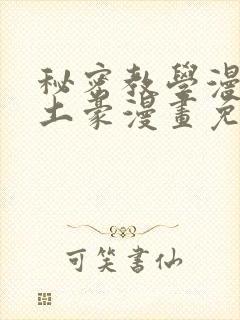 秘密教學漫
土豪漫畫免
可笑書仙